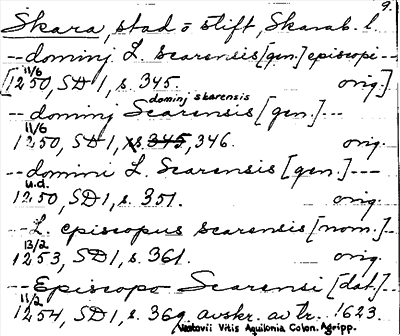 9.
Skara, stad o stift, Skarab. l.
--dominj L. scarensis [gen.] episcopi--
11/6
[1250, SD 1, s. 345. orig.]
dominj skarensis
--dominj Scarensis [gen.]---
11/6
1250, SD 1, s. 345, 346. orig.
--domini L. Scarensis [gen.]---
u.d.
1250, SD 1, s. 351. orig.
--L. episcopus scarensis [nom.]--
13/2
1253, SD 1, s. 361. orig.
--Episcopo Scarensi [dat.]--
11/2
1254, SD 1, s. 369 avskr. av tr. 1623.
Vastovii Vitis Aquilonia Colon. Agripp.